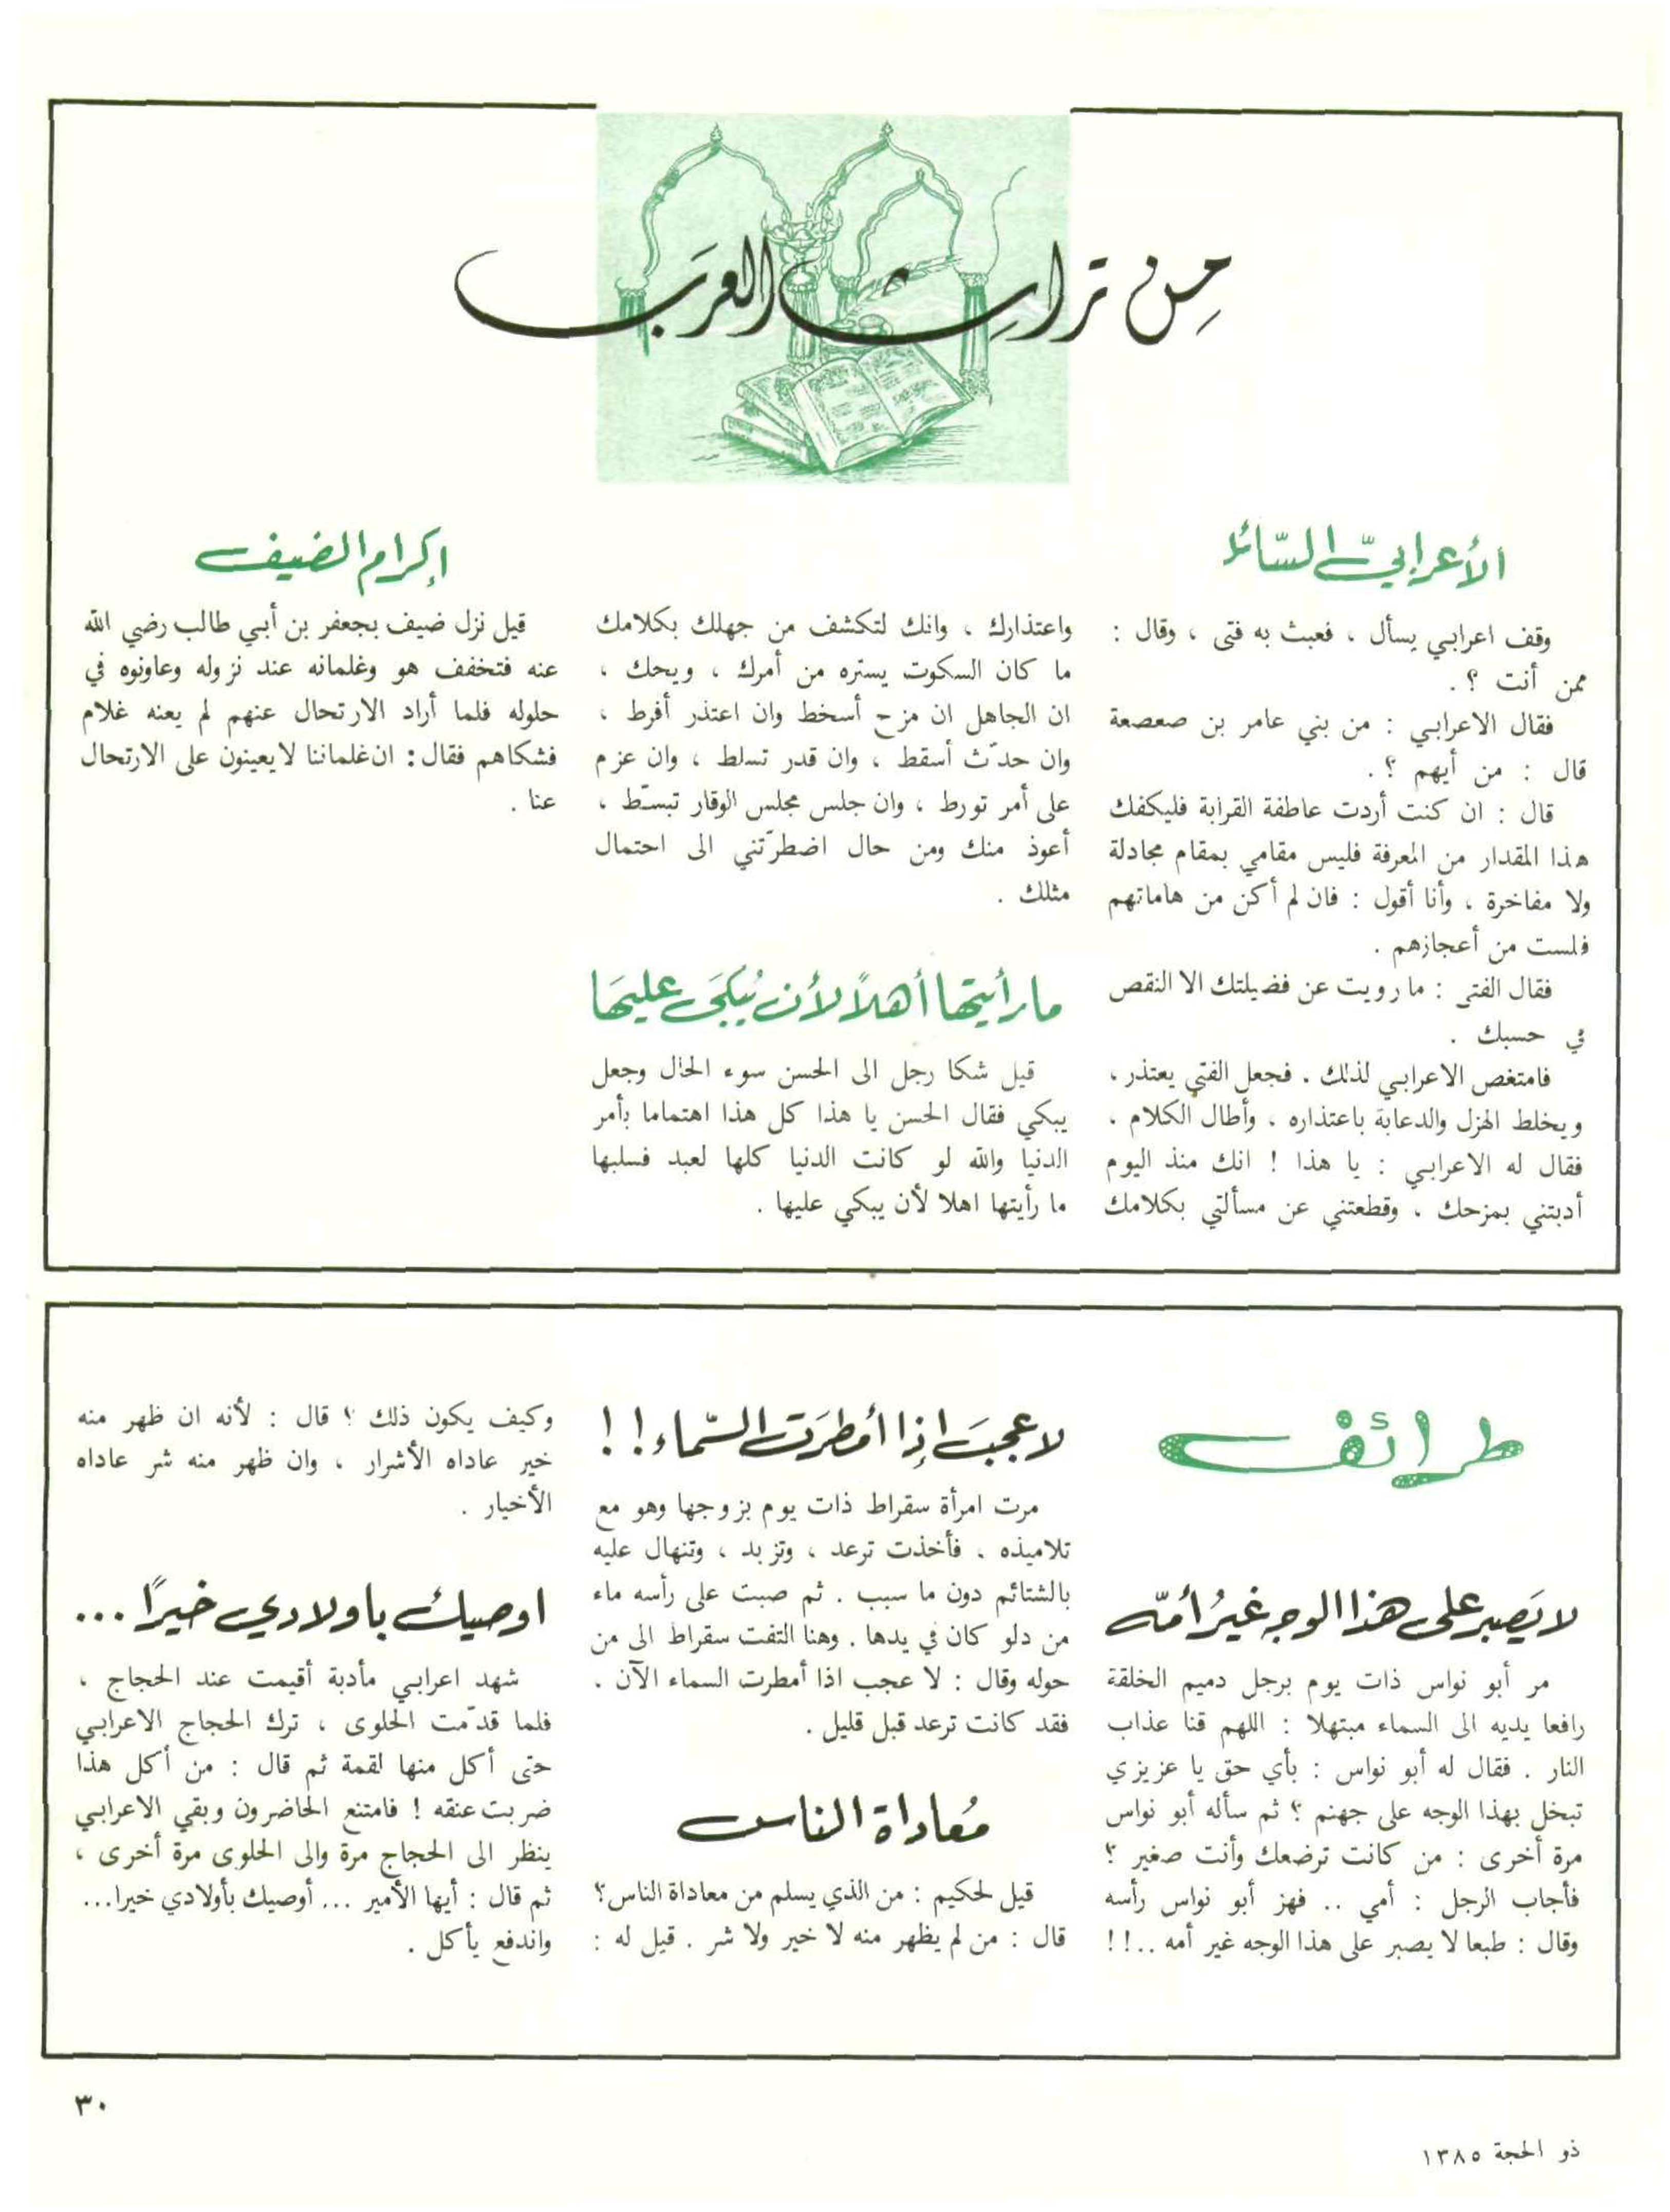 من تراث العرب
الأعرابيّ السّائل
وقف اعرابي يسأل ، فعبث به فتى ، وقال :
ممن أنت ؟ .
فقال الاعرابي : من بني عامر بن صعصعة
قال : من أيهم ؟ .
قال : ان كنت أردت عاطفة القرابة فليكفك
هذا المقدار من المعرفة فليس مقامي بمقام مجادلة
ولا مفاخرة ، وأنا أقول : فان لم أكن من هاماتهم
فلست من أعجازهم .
فقال الفتى : ما رويت عن فضيلتك الا النقص
في حسبك .
فامتغص الاعرابي لذلك . فجعل الفتي يعتذر ،
ويخلط الهزل والدعابة باعتذاره ، وأطال الكلام .
فقال له الاعرابي : يا هذا ! انك منذ اليوم
أدبتني بمزحك ، وقطعتني عن مسألتي بكلامك
واعتذارك ، وانك لتكشف من جهلك بكلامك
ما كان السكوت يستره من أمرك ، ويحك ،
ان الجاهل ان مزح أسخط وان اعتذر أفرط ،
وان حدّث أسقط ، وان قدر تسلط ، وان عزم
على أمر تورط ، وان جلس مجلس الوقار تبسّط ،
أعوذ منك ومن حال اضطرّتني الى احتمال
مثلك .
ما رأيتها أهلاً لأن يُبكَى عليهَا
قيل شكا رجل الى الحسن سوء الحال وجعل
يبكي فقال الحسن يا هذا كل هذا اهتماما بأمر
الدنيا والله لو كانت الدنيا كلها لعبد فسلبها
ما رأيتها اهلا لأن يبكي عليها .
إكرام الضيف
قيل نزل ضيف بجعفر بن أبي طالب رضي الله
عنه فتخفف هو وغلمانه عند نزوله وعاونوه في
حلوله فلما أراد الارتحال عنهم لم يعنه غلام
فشكاهم فقال : ان غلماننا لا يعينون على الارتحال
عنا .
طرائف
لا يَصبر على هذا الوجه غيرُ أمّه
مر أبو نواس ذات يوم برجل دميم الخلقة
رافعا يديه الى السماء مبتهلا : اللهم قنا عذاب
النار . فقال له أبو نواس : بأي حق يا عزيزي
تبخل بهذا الوجه على جهنم ؟ ثم سأله أبو نواس
مرة أخرى : من كانت ترضعك وأنت صغير ؟
فأجاب الرجل : أمي .. فهز أبو نواس رأسه
وقال : طبعا لا يصبر على هذا الوجه غير أمه ..!!
لا عجبَ إذا أمطرَت السّماء!!
مرت امرأة سقراط ذات يوم بزوجها وهو مع
تلاميذه ، فأخذت ترعد ، وتزبد ، وتنهال عليه
بالشتائم دون ما سبب . ثم صبت على رأسه ماء
من دلو كان في يدها . وهنا التفت سقراط الى من
حوله وقال : لا عجب اذا أمطرت السماء الآن .
فقد كانت ترعد قبل قليل .
مُعاداة الناس
قيل لحكيم : من الذي يسلم من معاداة الناس؟
قال : من لم يظهر منه لا خير ولا شر . قيل له :
وكيف يكون ذلك ؟ قال : لأنه ان ظهر منه
خير عاداه الأشرار ، وان ظهر منه شر عاداه
الأخيار .
اوصيك باولادي خيراً ...
شهد اعرابي مأدبة أقيمت عند الحجاج ،
فلما قدّمت الحلوى ، ترك الحجاج الاعرابي
حتى أكل منها لقمة ثم قال : من أكل هذا
ضربت عنقه ! فامتنع الحاضرون وبقي الاعرابي
ينظر الى الحجاج مرة والى الحلوى مرة أخرى ،
ثم قال : أيها الأمير ... أوصيك بأولادي خيرا...
واندفع يأكل .
٣٠
ذو الحجة ١٣٨٥